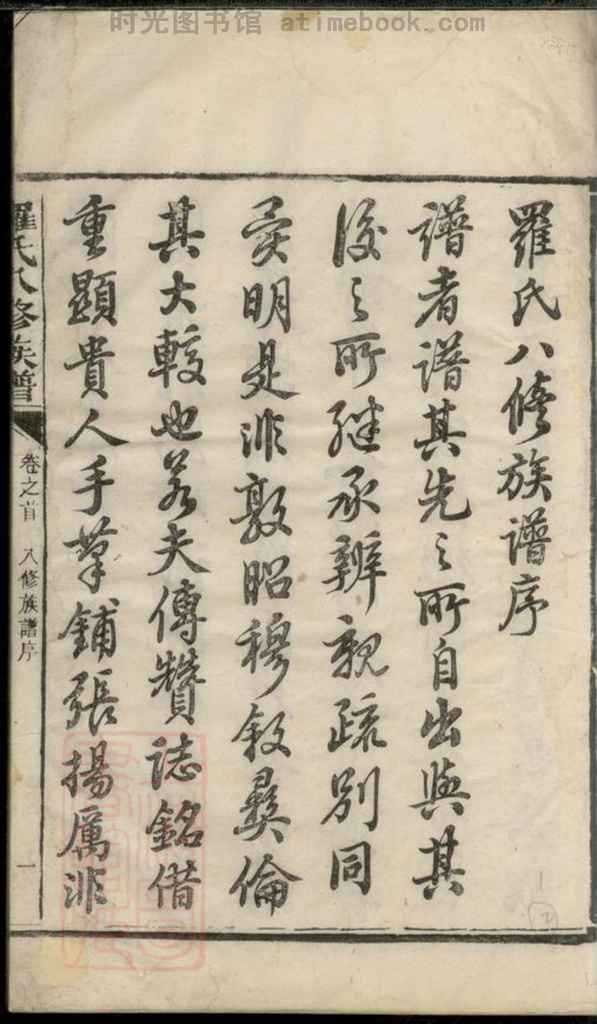 时光图书馆 atimebook.com
羅氏八修族譜序
譜者譜其先之所自出與其
後之所繼承辨親疏別同
異明是非敦昭穆敘彝倫
其大較也若夫傳贊誌銘借
重顯貴人手筆鋪張揚厲非
羅氏八修族譜
卷之首 八修族譜序
一